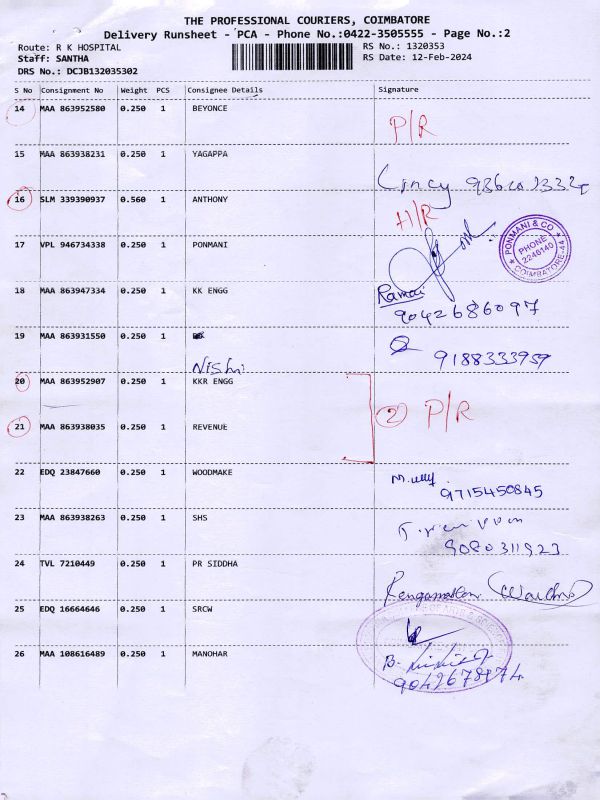 THE PROFESSIONAL COURIERS, COIMBATORE
Delivery Runsheet - PCA - Phone No.:0422-3505555 - Page No.:2
Route: R K HOSPITAL
Staff: SANTHA
DRS No.: DCJB132035302
RS No.: 1320353
RS Date: 12-Feb-2024
S No Consignment No Weight PCS Consignee Details Signature
14 MAA 863952580 0.250 1 BEYONCE P/R
15 MAA 863938231 0.250 1 YAGAPPA
16 SLM 339390937 0.560 1 ANTHONY H/R
17 VPL 946734338 0.250 1 PONMANI
PONMANI & CO
PHONE
2246140
COIMBATORE-44
18 MAA 863947334 0.250 1 KK ENGG
9042686097
19 MAA 863931550 0.250 1
Nishi
9188333959
20 MAA 863952907 0.250 1 KKR ENGG
2 P/R
21 MAA 863938035 0.250 1 REVENUE
22 EDQ 23847660 0.250 1 WOODMAKE
9715450845
23 MAA 863938263 0.250 1 SHS
9080311923
24 TVL 7210449 0.250 1 PR SIDDHA
25 EDQ 16664646 0.250 1 SRCW
26 MAA 108616489 0.250 1 MANOHAR